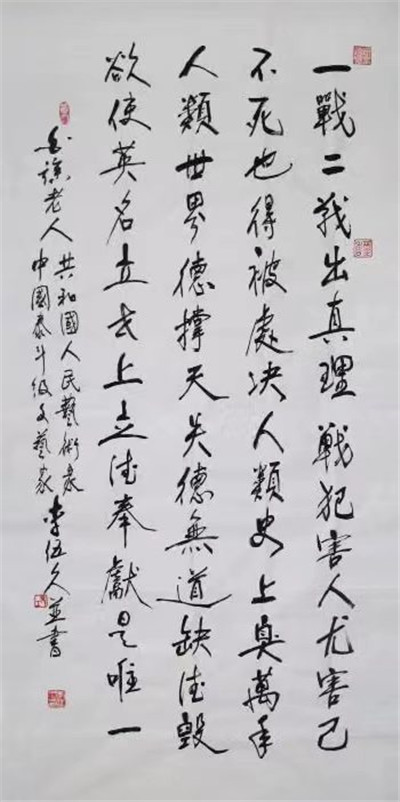 一戰二战出真理戰犯害人尤害己
不死也得被處决人類史上臭萬年
人類世界德撐天失德無道缺德毀
欲使英名立世上立德奉獻是唯一
老人
共和國人民藝術家
中國泰斗级文藝家
李伍久並書